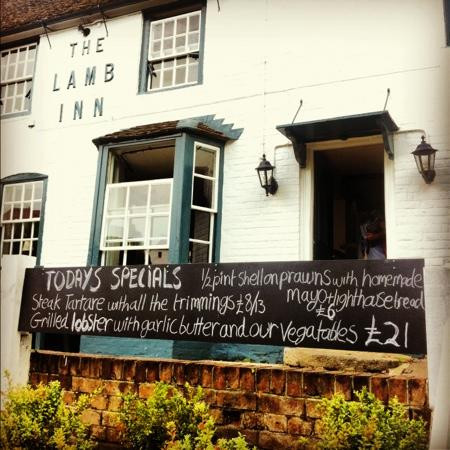 THE
LAMB
INN
TODAYS SPECIALS
Steak Tartare with all the trimmings £8/13
½ pint shell on prawns with homemade
mayo + lighthouse bread
£6
Grilled lobster with garlic butter and our Vegatables £21